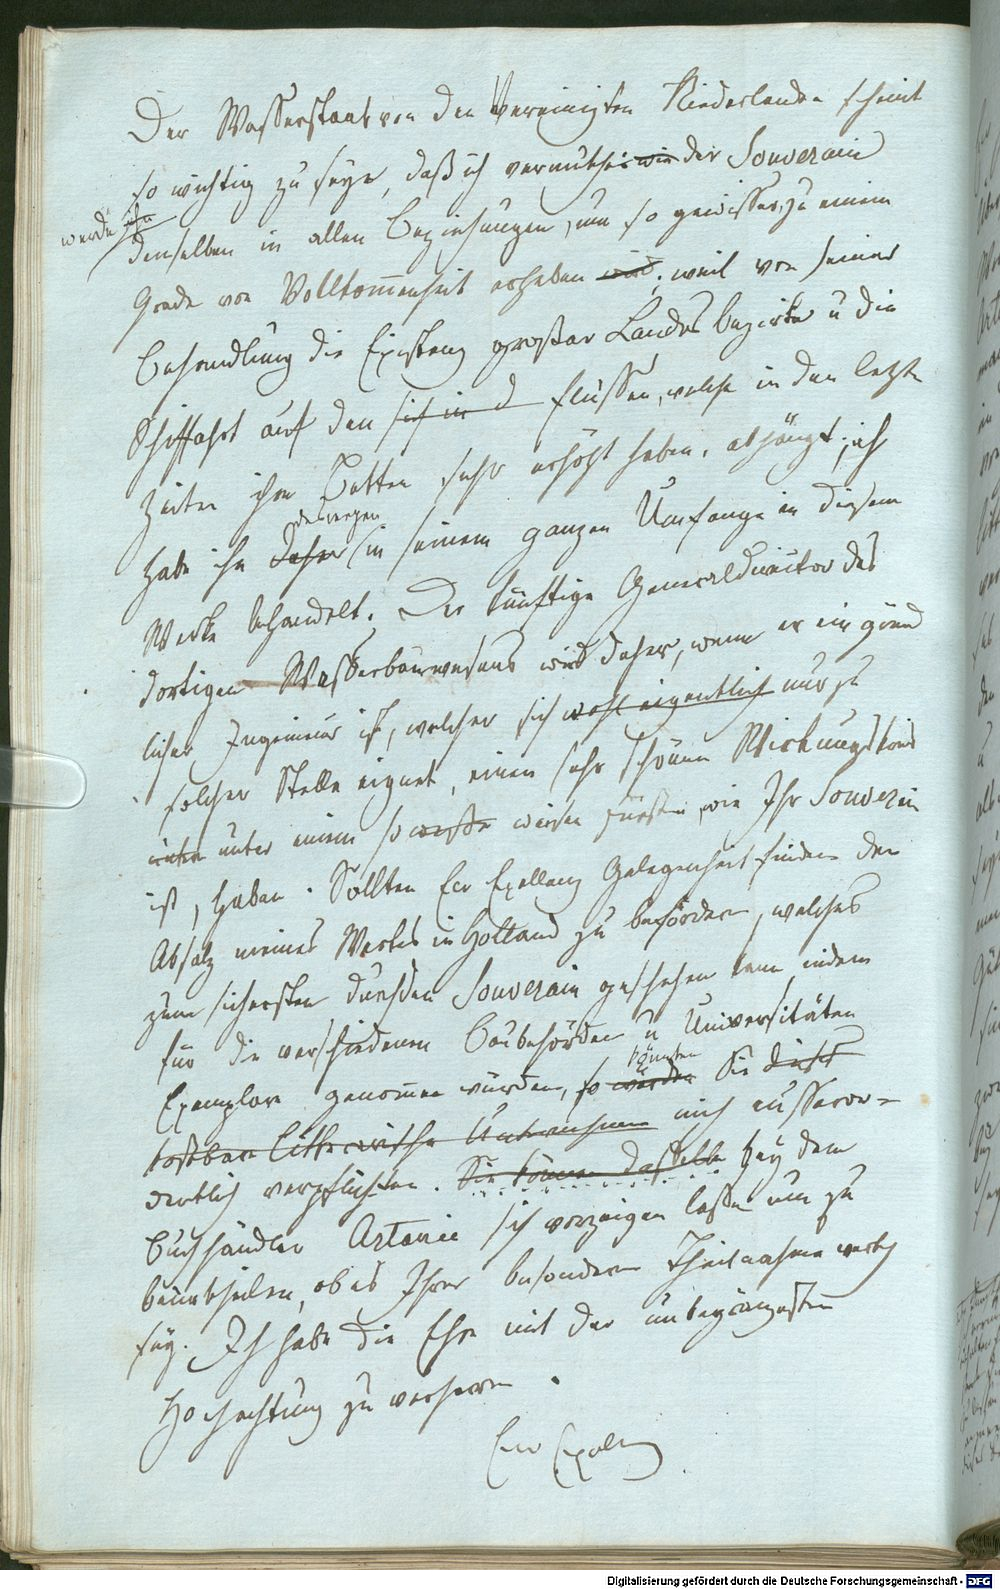 Der Wasserstaat von den Vereinigten Niederlanden scheint
so wichtig zu seyn, daß ich vermuthe wie der Souverain
werde ihn
denselben in allen Beziehungen, um so gewisser, zu einem
Grade von Vollkommenheit erheben wird; weil von seiner
Behandlung die Existenz großer Landes bezirke u die
Schiffahrt auf den sich in d Flüssen, welche in den letzten
Zeiten ihre Betten sehr erhöht haben, abhängt; ich
deswegen
habe ihn daher in seinem ganzen Umfange in diesem
Werke behandelt. Der künftige Generaldirector des
dortigen Wasserbauwesens wird daher, wenn er ein gründ
licher Ingenieur ist, welcher sich wohl eigentlich nur zu
solcher Stelle eignet, einen sehr schönen Wirkungskreis
unter unter einem so weisen Fürsten, wie Ihr Souverain
ist, haben. Sollten Eu Exellenz Gelegenheit finden den
Absatz meines Werkes in Holland zu befördern, welches
zum sichersten durch den Souverain geschehen kann, indem
für die verschiedenen Baubehörden u Universitäten
könnten
Exemplare genommen würden, so würden Sie dieses
kostbare litterarische Unternehmen mich ausseror=
dentlich verpflichten. Sie können dasselbe bey dem
Buchhändler Artaria sich vorzeigen lassen um zu
beurtheilen, ob es Ihrer besondern Theilnahme werth
sey. Ich habe die Ehre mit der unbegränzesten
Hochachtung zu verharren.
Eu Exellenz
Digitalisierung gefördert durch die Deutsche Forschungsgemeinschaft - DFG